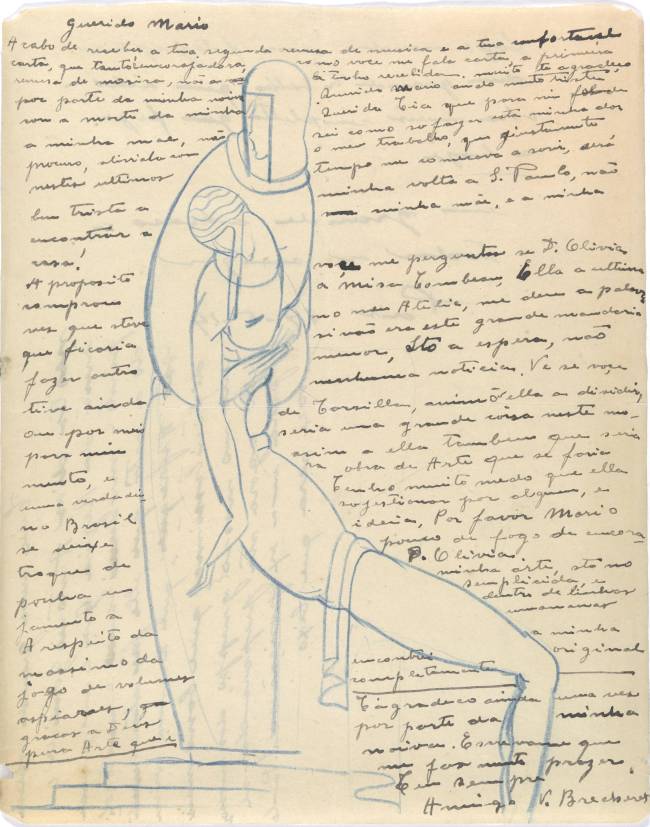 Querido Mario
Acabo de receber a tua segunda remesa de musica e a tua confortavel
carta, que tanto encorajadora, como voce me fala carta, a primeira
remesa de musica, não a tenho recebida. muito te agradeco
por parte da minha noiva Querido Mario ando muito triste,
com a morte da minha Querida Tica que para mim
a minha mae, não sei como so fazer esta minha dor
procuro, o meu trabalho, que justamente
nestes ultimos tempo me comecava a sorir, será
bem triste a minha volta a S. Paulo, não
encontrar a minha mãe, e a minha
casa!
A proposito voce me pergunta se D. Olivia
comprou a Misa Tombeau, Ella a ultima
vez que steve no meu Atelie, me deu a palavra
que ficaria si não era este grande mandaria
fazer outro menor, Stò a espera, não
tive ainda nenhuma noticias. Ve se voce
ou por meio de Tarsilla, animò ella a dividir,
para mim seria uma grande coisa neste mo-
mento, e asim a ella tambem que seria
uma verdadei- ra obra de Arte que se foria
no Brasil Tenho muito medo que ella
se deixe sogestionar por alguem, e
troque de ideia, Por favor Mario
ponha um pouco de fogo de encora-
jamento a D. Olivia.
A respeito da minha arte, stò no
massimo da semplicidà, e
jogo de volumes dentro de linhas
graças a Deus encontrei a minha
para Arte que e completamente original
Te agradeco ainda uma vez
por parte da minha
noiva. Escrevame que
me fas muito prazer.
Teu sempre
Amigo V. Brecheret